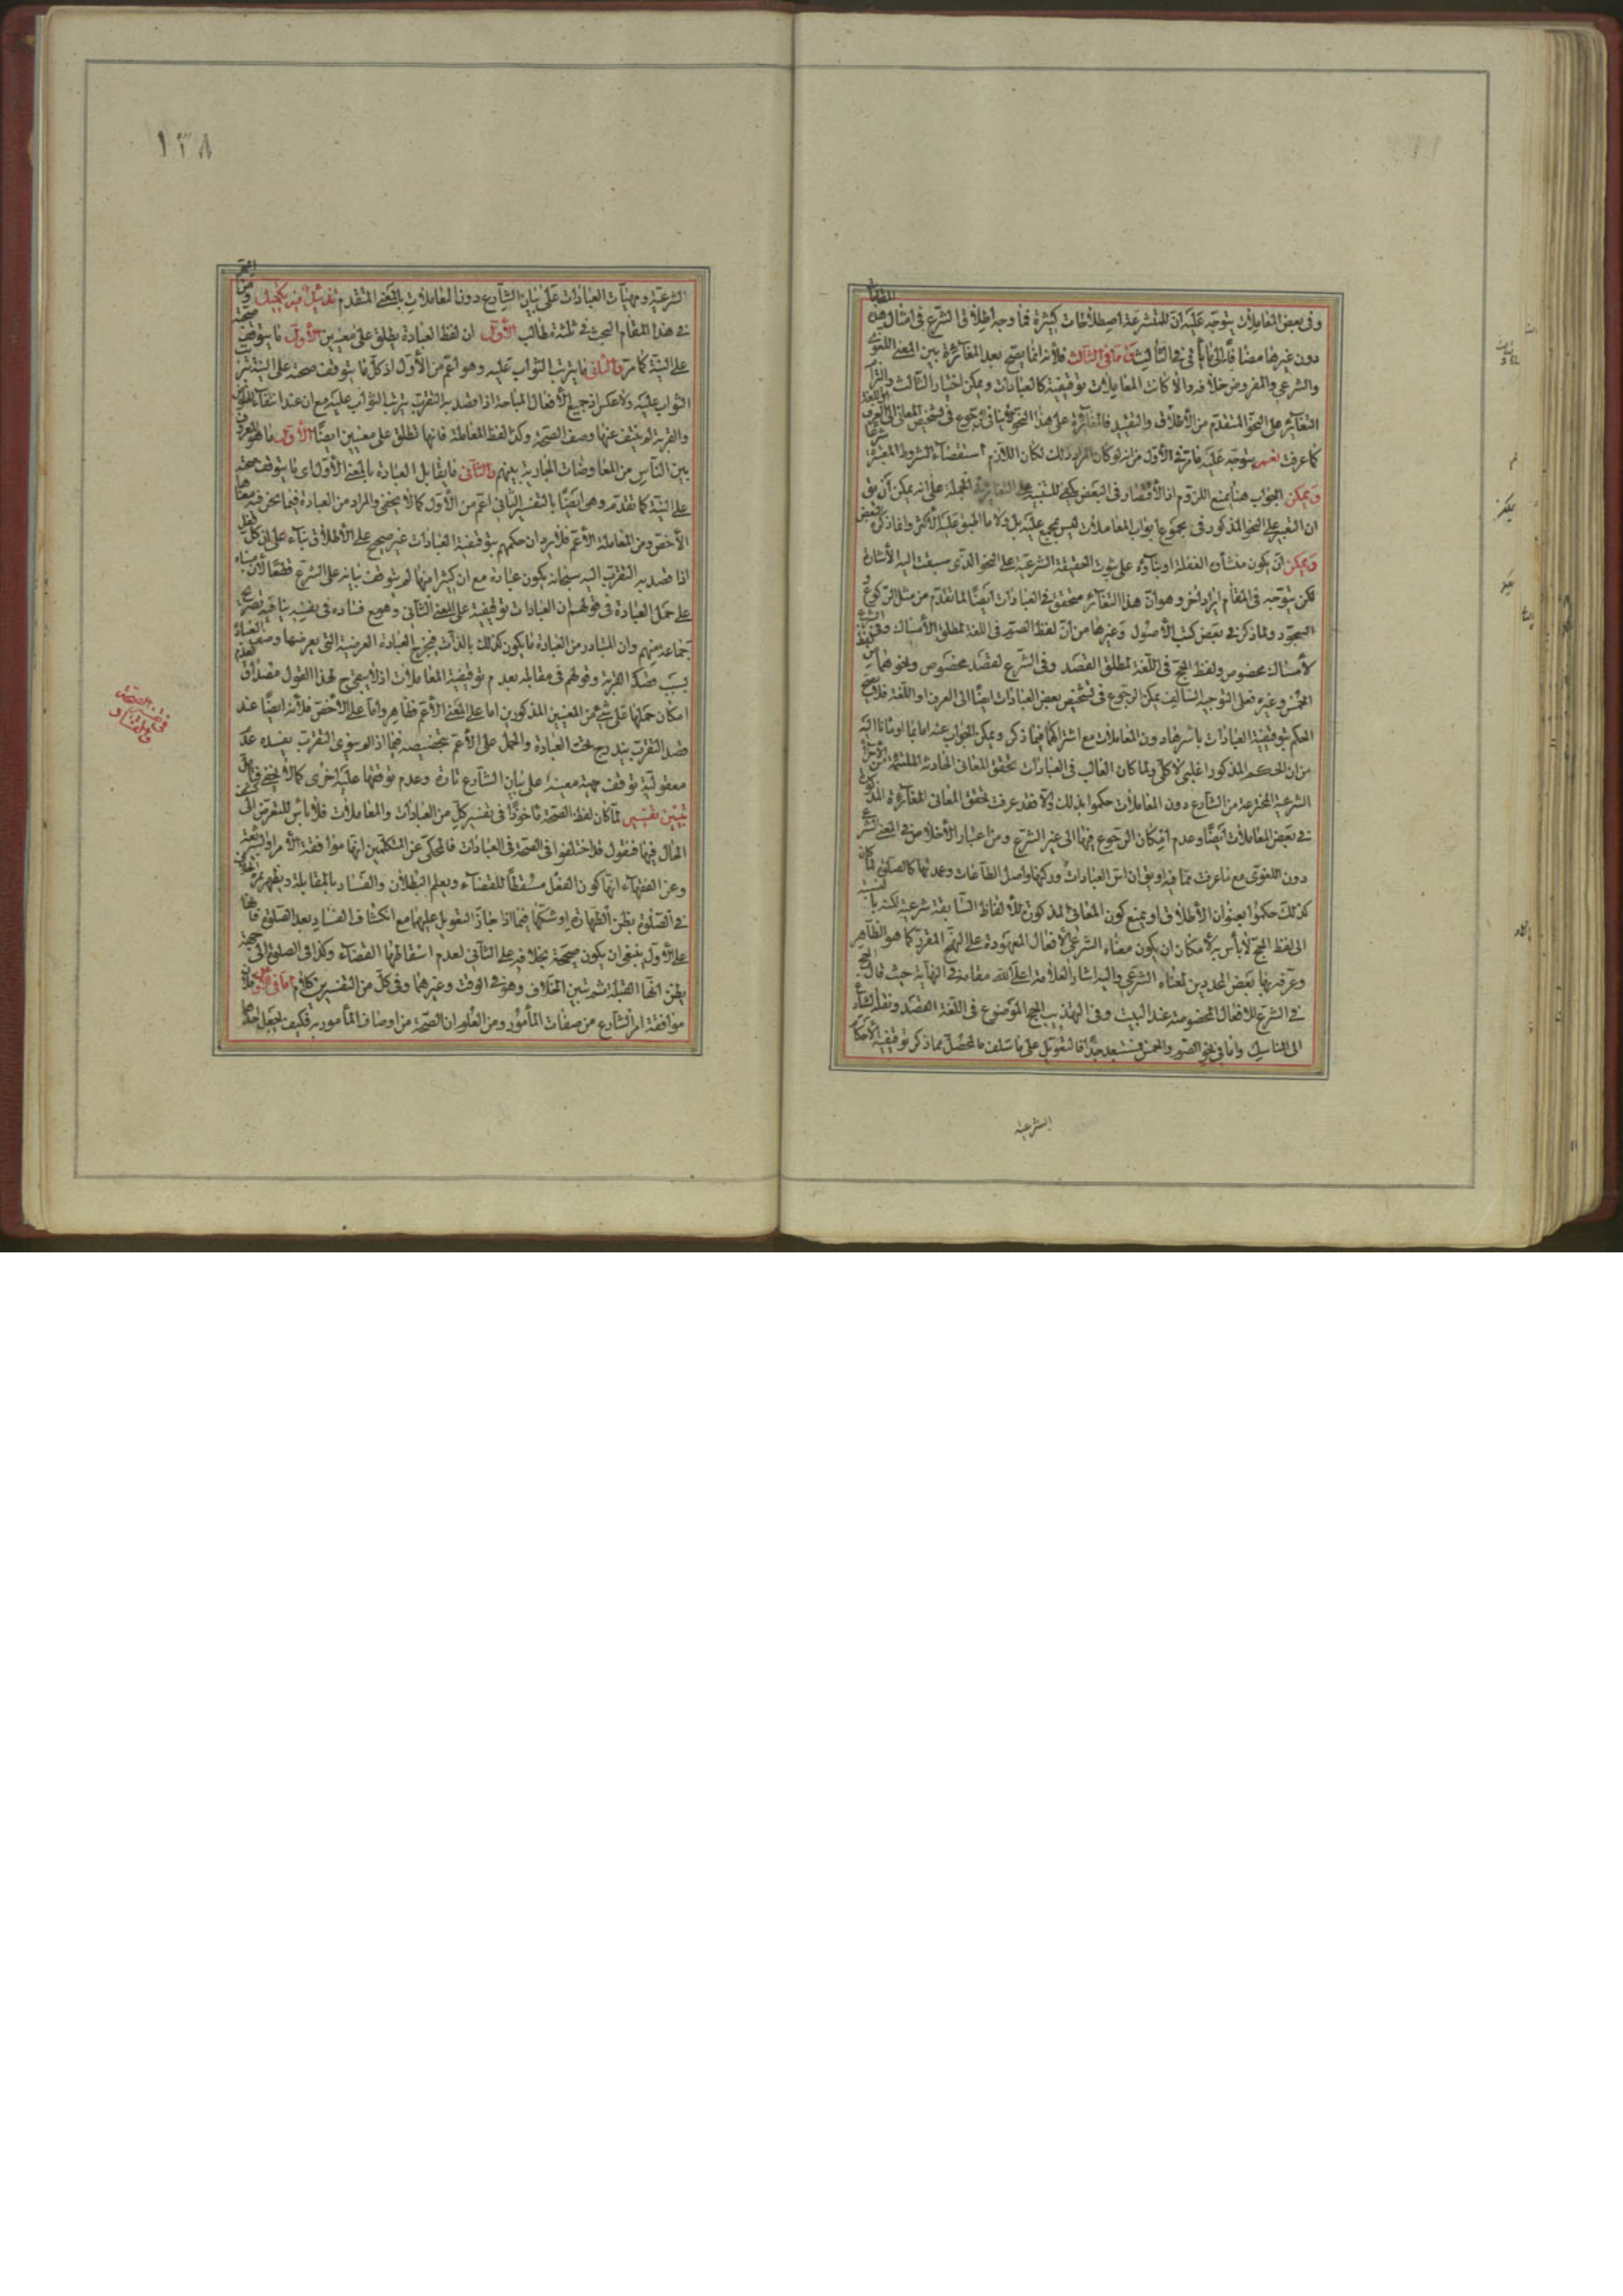 وفى بعض المعاملات يتوجه عليه ان للمتشرعة اصطلاحات كثيرة فما وجه اطلاق الشرع فى امثال هذه المقامات
دون غيرها مضافا الى ما يأتى فى الثالث واما فى الثالث فلانه انما يصح بعد المغايرة بين المعنى اللغوى
والشرعى والمفروض خلافه والا كانت المعاملات توقيفية كالعبادات ويمكن اختيار الثالث والتزام
التغاير على النحو المتقدم من الاطلاق والتقييد فالمغايرة على هذا النحو لا ينافى الرجوع فى تشخيص المعانى الى العرف
كما عرفت نعم يتوجه عليه ما مر فى الاول من انه لو كان المراد ذلك لكان اللازم استقصاء الشروط المعتبرة
ويمكن الجواب هنا بمنع اللزوم اذ الاقتصار فى البعض يكفى للتنبيه على المغايرة فى الجملة على انه يمكن ان يق
ان التغيير على النحو المذكور فى مجموع ابواب المعاملات ليس بمجمع عليه بل ولا ما اطبق عليه الاكثر وانما ذكره البعض
ويمكن ان يكون منشأه الغفلة او بناؤه على ثبوت الحقيقة الشرعية على النحو الذى سبقت اليه الاشارة
لكن يتوجه فى المقام ايراد اخر وهو ان هذا التغاير متحقق فى العبادات ايضا لما تقدم من مثل الركوع و
السجود ولما ذكر فى بعض كتب الاصول وغيرها من ان لفظ الصوم فى اللغة لمطلق الامساك وفى الشرع
لامساك مخصوص ولفظ الحج فى اللغة لمطلق القصد وفى الشرع لقصد مخصوص ونحوهما من لفظ
الخمس وغيره فعلى التوجيه السالف يمكن الرجوع فى تشخيص بعض العبادات ايضا الى العرف او اللغة فلا يصح
الحكم بتوقيفية العبادات باسرها دون المعاملات مع اشتراكهما فيما ذكر ويمكن الجواب عنه اما بما اومأنا اليه
من ان الحكم المذكور اغلبى لا كلى ولما كان الغالب فى العبادات تحقق المعانى الحادثة الملتئمة من الاجزاء
الشرعية المخترعة من الشارع دون المعاملات حكموا بذلك والا فقد عرفت تحقق المعانى المغايرة المذكورة
فى بعض المعاملات ايضا وعدم امكان الرجوع فيها الى غير الشرع ومن اعتبار الاخلاص فى المعنى الشرعى
دون اللغوى مع ما عرفت مما فيه او يق ان اس العبادات وركنها واصل الطاعات وعمدتها كالصلوة لما كان
كذلك حكموا بعنوان الاطلاق او يمنع كون المعانى المذكورة للالفاظ السابقة شرعية لكنه بالنسبة
الى لفظ الحج لا بأس به لامكان ان يكون معناه الشرعى الافعال المعهودة على النهج المقرر كما هو الظاهر
وعرفه بها بعض المحددين لمعناه الشرعى واليه اشار العلامة اعلى الله مقامه فى النهاية حيث قال الحج
فى الشرع للافعال المخصوصة عند البيت وفى التهذيب الحج الموضوع فى اللغة القصد ونقله الشارع
الى المناسك واما فى نحو الصوم والخمس فمستبعد جدا فالتعويل على ما سلف فالمحصل مما ذكر توقيفية الاحكام
الشرعية
١٣٨
الشرعية ومهيات العبادات على بيان الشارع دون المعاملات بالمعنى المتقدم تذييل فيه تكميل
فى هذا المقام والبحث فى ثلثة مطالب الاول ان لفظ العبادة يطلق على معنيين الاول ما يتوقف صحته
على النية كما مر والثانى ما يترتب الثواب عليه وهو اعم من الاول اذ كل ما يتوقف صحته على النية يترتب
الثواب عليه ولا عكس اذ جميع الافعال المباحة اذا قصد به التقرب يترتب الثواب عليه مع ان عند انتفاء
والقربة لم ينتف عنها وصف الصحة وكذا لفظ المعاملة فانها تطلق على معنيين ايضا الاول ما هو المعروف
بين الناس من المعاوضات الجارية بينهم والثانى ما يقابل العبادة بالمعنى الاول اى ما يتوقف صحته
على النية كما تقدم وهى ايضا بالتفسير الثانى اعم من الاول كما لا يخفى والمراد من العبادة فيما نحن فيه معناها
الاخص ومن المعاملة الاعم فلا يرد ان حكمهم بتوقيفية العبادات غير صحيح على الاطلاق بناء على ان كل فعل
اذا قصد به التقرب اليه سبحانه يكون عبادة مع ان كثيرا منها لم يتوقف بيانه على الشرع قطعا لان مبناه
على حمل العبادة فى قولهم ان العبادات توقيفية على المعنى الثانى وهو مع فساده فى نفسه ينافيه تصريح
جماعة منهم وان المتبادر من العبادة ما يكون كذلك بالذات فيخرج العبادة العرضية التى يعرضها وصف العبادة
بسبب قصد القربة وقولهم فى مقابله بعدم توقيفية المعاملات اذ لا يبقى ح لهذا القول مصداق لعدم
امكان حملها على شئ من المعنيين المذكورين اما على المعنى الاعم فظاهر واما على الاخص فلانه ايضا عند
قصد التقرب يندرج تحت العبادة والحمل على الاعم بتخصيصه فيما اذا لم ينوى التقرب يفسده عدم
معقولية توقف مهية معينة على بيان الشارع تارة وعدم توقفها عليه اخرى كما لا يخفى
تبيين نفيس لما كان لفظ الصحة مأخوذا فى تفسير كل من العبادات والمعاملات فلا بأس للتعرض الى
الحال فيها فنقول قد اختلفوا فى الصحة فى العبادات فالمحكى عن المتكلمين انها موافقة الامر او الشريعة
وعن الفقهاء انها كون الفعل مسقطا للقضاء ويعلم البطلان والفساد بالمقابلة ويظهر ثمرة الخلاف
فى الصلوة بظن الطهارة او شكها فيما اذا جاز التعويل عليهما مع انكشاف الفساد بعد الصلوة فانها
على الاول ينبغى ان يكون صحيحة بخلافه على الثانى لعدم اسقاطها القضاء وكذا فى الصلوة الى جهة
يظن انها القبلة ثم تبين الخلاف وهو فى الوقت وغيرهما وفى كل من التفسيرين كلام اما فى الاول فلان
موافقة امر الشارع من صفات المأمور ومن المعلوم ان الصحة من اوصاف المأمور به فكيف يجعل احدهما
فى الصحة
والفساد